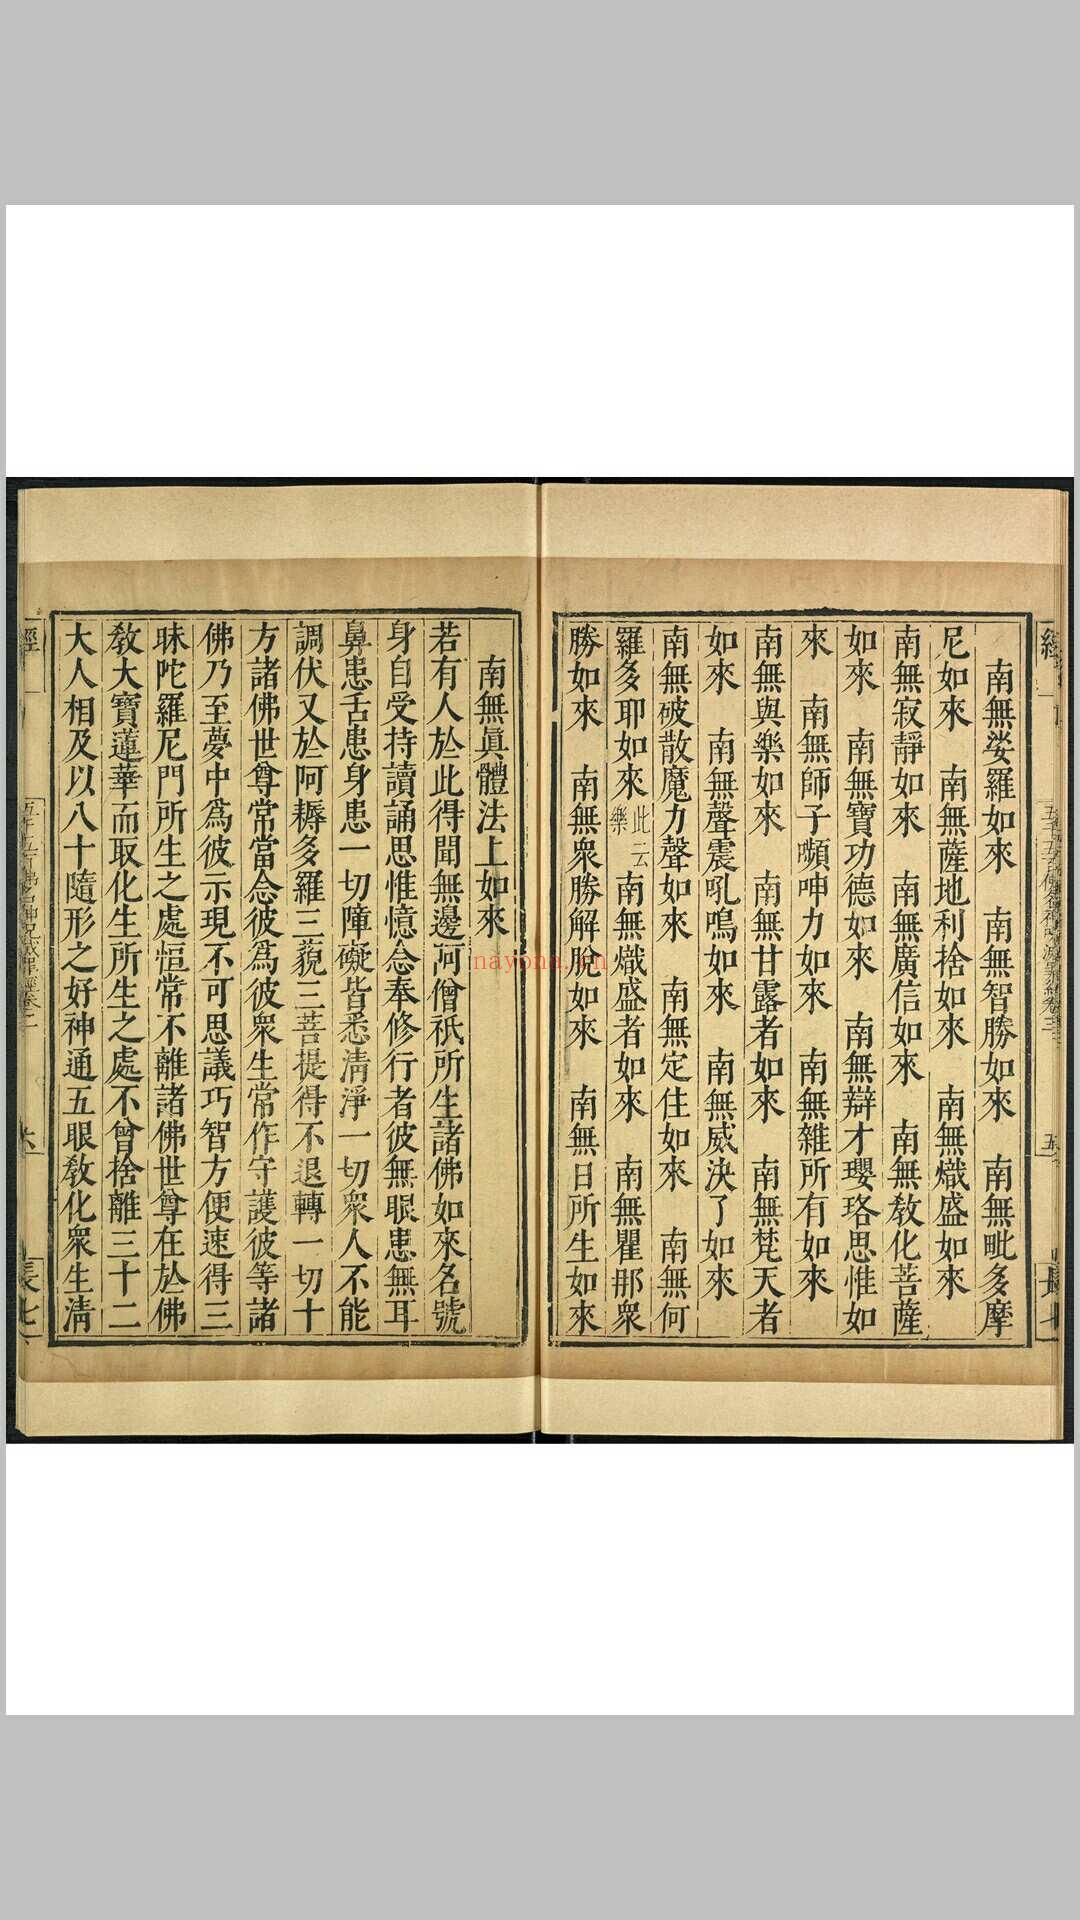 南無娑羅如來　南無智勝如來　南無毗多摩
尼如來　南無薩地利捨如來　南無熾盛如來
南無寂靜如來　南無廣信如來　南無敎化菩薩
如來　南無寶功德如來　南無辯才瓔珞思惟如
來　南無師子嚬呻力如來　南無雜所有如來
南無與樂如來　南無甘露者如來　南無梵天者
如來　南無聲震吼鳴如來　南無威決了如來
南無破散魔力聲如來　南無定住如來　南無何
羅多耶如來此云樂　南無熾盛者如來　南無瞿那衆
勝如來　南無衆勝解脫如來　南無日所生如來
南無眞體法上如來
若有人於此得聞無邊阿僧祇所生諸佛如來名號
身自受持讀誦思惟憶念奉修行者彼無眼患無耳
鼻患舌患身患一切障礙皆悉淸淨一切衆人不能
調伏又於阿耨多羅三藐三菩提得不退轉一切十
方諸佛世尊常當念彼爲彼衆生常作守護彼等諸
佛乃至夢中爲彼示現不可思議巧智方便速得三
昧陀羅尼門所生之處恒常不離諸佛世尊在於佛
敎大寶蓮華而取化生所生之處不曾捨離三十二
大人相及以八十隨形之好神通五眼敎化衆生淸
經
六
長七
nayona.cn